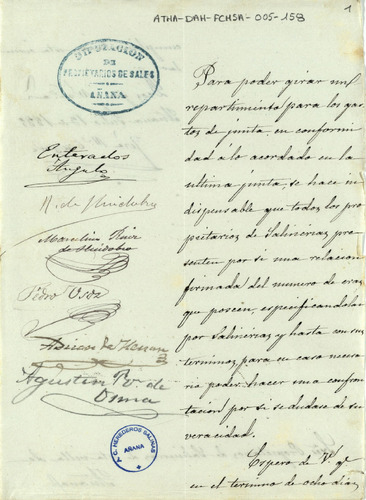 ATHA-DAH-FCHSA-005-158
1
DIPUTACION
DE
PROPIETARIOS DE SALES
AÑANA
Enterados
Angulo
M. de Huidobro
Marcelino Ruiz
de Huidobro
Pedro Usoz
Agustin Rz. de
Osma
Fº C. HEREDEROS SALINAS
AÑANA
Para poder girar un
repartimiento para los gas-
tos de junta, en conformi-
dad á lo acordado en la
ultima junta, se hace in-
dispensable que todos los pro-
pietarios de Salineras pre-
senten por si una relacion
firmada del numero de eras
que poseen, especificandolas
por Salineras y hasta con sus
terminos para en caso necesa-
rio poder hacer una confron-
tacion por si se dudase de su
veracidad.
Espero de V. q
en el termino de ocho dias